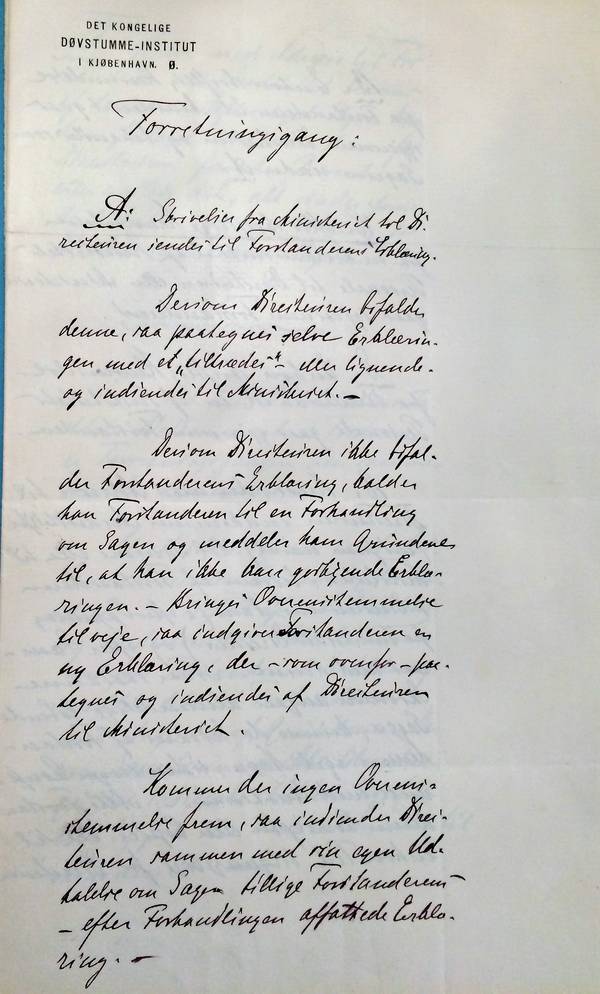 DET KONGELIGE
DØVSTUMME-INSTITUT
I KJØBENHAVN. Ø.
Forretningsgang:
A: Skrivelser fra Ministeriet til Di-
rektøren sendes til Forstanderens Erklæring.
Dersom Direktøren bifalder
denne, saa paategnes selve Erklærin-
gen med et „tiltrædes“ - eller lignende -
og indsendes til Ministeriet. -
Dersom Direktøren ikke bifal-
der Forstanderens Erklæring, kalder
han Forstanderen til en Forhandling
om Sagen og meddeler ham Grundene
til, at han ikke kan godkjende Erklæ-
ringen. - Bringes Overensstemmelse
tilveje, saa indgiver Forstanderen en
ny Erklæring, der - som ovenfor - paa-
tegnes og indsendes af Direktøren
til Ministeriet.
Kommer der ingen Overens-
stemmelse frem, saa indsender Direk-
tøren sammen med sin egen Ud-
talelse om Sagen tillige Forstanderens
- efter Forhandlingen affattede Erklæ-
ring. -